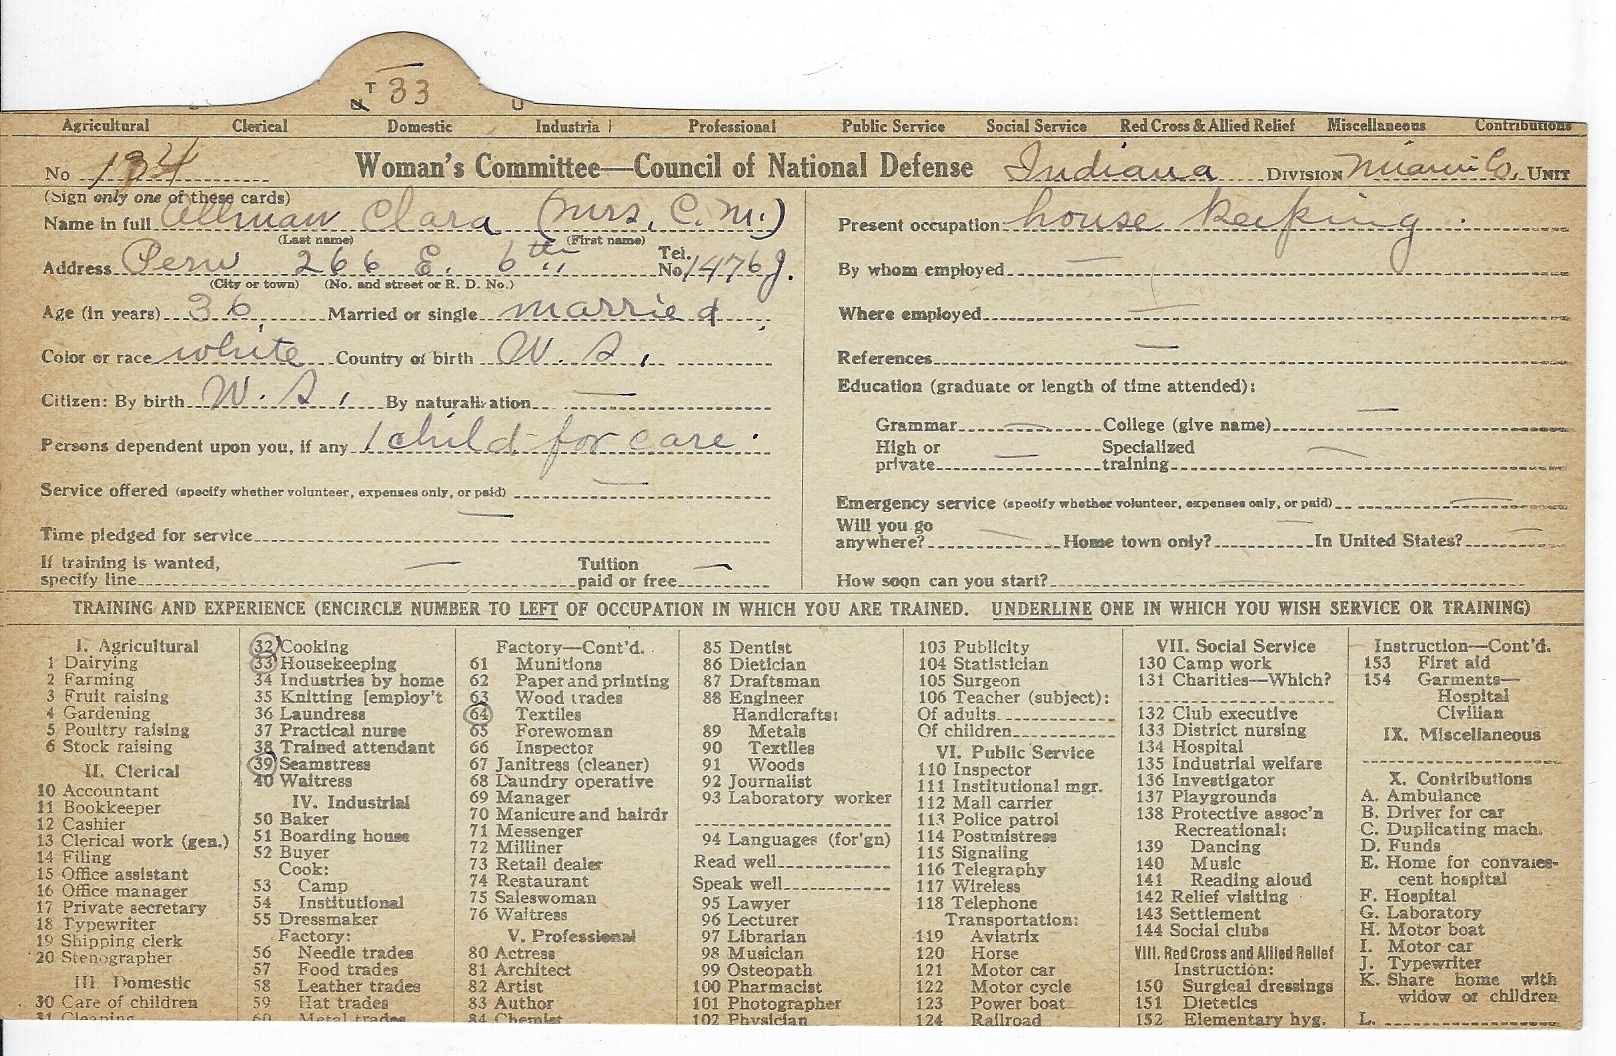 T 33
U
Agricultural Clerical Domestic Industrial Professional Public Service Social Service Red Cross & Allied Relief Miscellaneous Contributions
No 134 Woman's Committee—Council of National Defense Indiana DIVISION Miami Co. UNIT
(Sign only one of these cards)
Name in full Allman Clara (Mrs. C. M.)
(Last name) (First name)
Address Peru 266 E. 6th Tel. No. 1476 J.
(City or town) (No. and street or R. D. No.)
Age (in years) 36 Married or single married
Color or race white Country of birth U. S.
Citizen: By birth U. S. By naturalization —
Persons dependent upon you, if any 1 child for care.
Service offered (specify whether volunteer, expenses only, or paid) —
Time pledged for service —
If training is wanted, specify line — Tuition paid or free —
Present occupation house keeping.
By whom employed —
Where employed —
References —
Education (graduate or length of time attended):
Grammar — College (give name) —
High or private — Specialized training —
Emergency service (specify whether volunteer, expenses only, or paid) —
Will you go anywhere? — Home town only? — In United States? —
How soon can you start? —
TRAINING AND EXPERIENCE (ENCIRCLE NUMBER TO LEFT OF OCCUPATION IN WHICH YOU ARE TRAINED. UNDERLINE ONE IN WHICH YOU WISH SERVICE OR TRAINING)
I. Agricultural
1 Dairying
2 Farming
3 Fruit raising
4 Gardening
5 Poultry raising
6 Stock raising
II. Clerical
10 Accountant
11 Bookkeeper
12 Cashier
13 Clerical work (gen.)
14 Filing
15 Office assistant
16 Office manager
17 Private secretary
18 Typewriter
19 Shipping clerk
20 Stenographer
III Domestic
30 Care of children
31 Cleaning
32 Cooking
33 Housekeeping
34 Industries by home
35 Knitting [employ't
36 Laundress
37 Practical nurse
38 Trained attendant
39 Seamstress
40 Waitress
IV. Industrial
50 Baker
51 Boarding house
52 Buyer
Cook:
53 Camp
54 Institutional
55 Dressmaker
Factory:
56 Needle trades
57 Food trades
58 Leather trades
59 Hat trades
60 Metal trades
Factory—Cont'd.
61 Munitions
62 Paper and printing
63 Wood trades
64 Textiles
65 Forewoman
66 Inspector
67 Janitress (cleaner)
68 Laundry operative
69 Manager
70 Manicure and hairdr
71 Messenger
72 Milliner
73 Retail dealer
74 Restaurant
75 Saleswoman
76 Waitress
V. Professional
80 Actress
81 Architect
82 Artist
83 Author
84 Chemist
85 Dentist
86 Dietician
87 Draftsman
88 Engineer
Handicrafts:
89 Metals
90 Textiles
91 Woods
92 Journalist
93 Laboratory worker
94 Languages (for'gn)
Read well
Speak well
95 Lawyer
96 Lecturer
97 Librarian
98 Musician
99 Osteopath
100 Pharmacist
101 Photographer
102 Physician
103 Publicity
104 Statistician
105 Surgeon
106 Teacher (subject):
Of adults
Of children
VI. Public Service
110 Inspector
111 Institutional mgr.
112 Mail carrier
113 Police patrol
114 Postmistress
115 Signaling
116 Telegraphy
117 Wireless
118 Telephone
Transportation:
119 Aviatrix
120 Horse
121 Motor car
122 Motor cycle
123 Power boat
124 Railroad
VII. Social Service
130 Camp work
131 Charities—Which?
132 Club executive
133 District nursing
134 Hospital
135 Industrial welfare
136 Investigator
137 Playgrounds
138 Protective assoc'n
Recreational:
139 Dancing
140 Music
141 Reading aloud
142 Relief visiting
143 Settlement
144 Social clubs
VIII. Red Cross and Allied Relief
Instruction:
150 Surgical dressings
151 Dietetics
152 Elementary hyg.
Instruction—Cont'd.
153 First aid
154 Garments—
Hospital
Civilian
IX. Miscellaneous
X. Contributions
A. Ambulance
B. Driver for car
C. Duplicating mach.
D. Funds
E. Home for convales-
cent hospital
F. Hospital
G. Laboratory
H. Motor boat
I. Motor car
J. Typewriter
K. Share home with
widow or children
L.